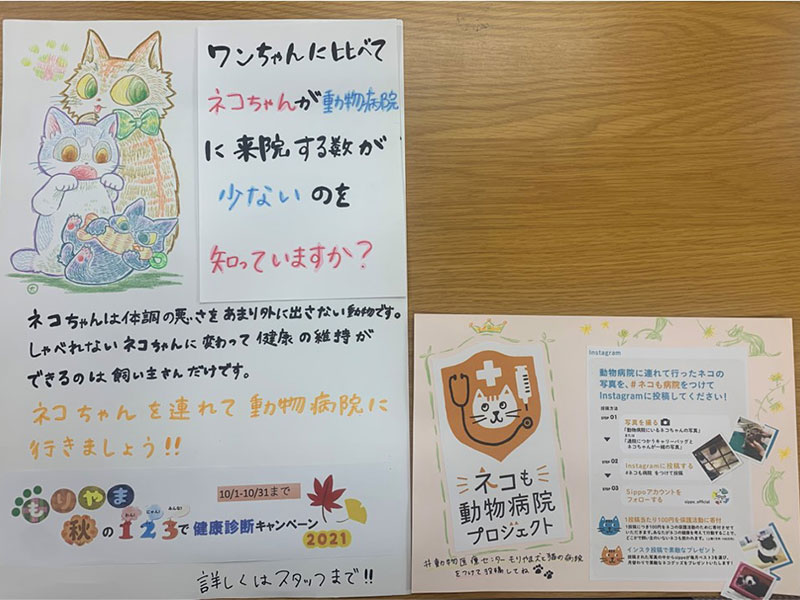 ワンちゃんに比べて
ネコちゃんが動物病院
に来院する数が
少ないのを
知っていますか？
ネコちゃんは体調の悪さをあまり外に出さない動物です。
しゃべれないネコちゃんに変わって健康の維持が
できるのは飼い主さんだけです。
ネコちゃんを連れて動物病院に
行きましょう!!
もりやま
10/1-10/31まで
秋の123で健康診断キャンペーン
2021
詳しくはスタッフまで!!
ネコも
動物病院
プロジェクト
#動物医療センターもりやま犬と猫の病院
をつけて投稿してね
Instagram
動物病院に連れて行ったネコの
写真を、#ネコも病院をつけて
Instagramに投稿してください！
投稿方法
STEP 01
写真を撮る
「動物病院にいるネコちゃんの写真」
または
「通院につかうキャリーバッグと
ネコちゃんが一緒の写真」
STEP 02
Instagramに投稿する
#ネコも病院 をつけて投稿
STEP 03
Sippoアカウントを
フォローする
sippo_official
1投稿当たり100円を保護活動に寄付
インスタ投稿で素敵なプレゼント